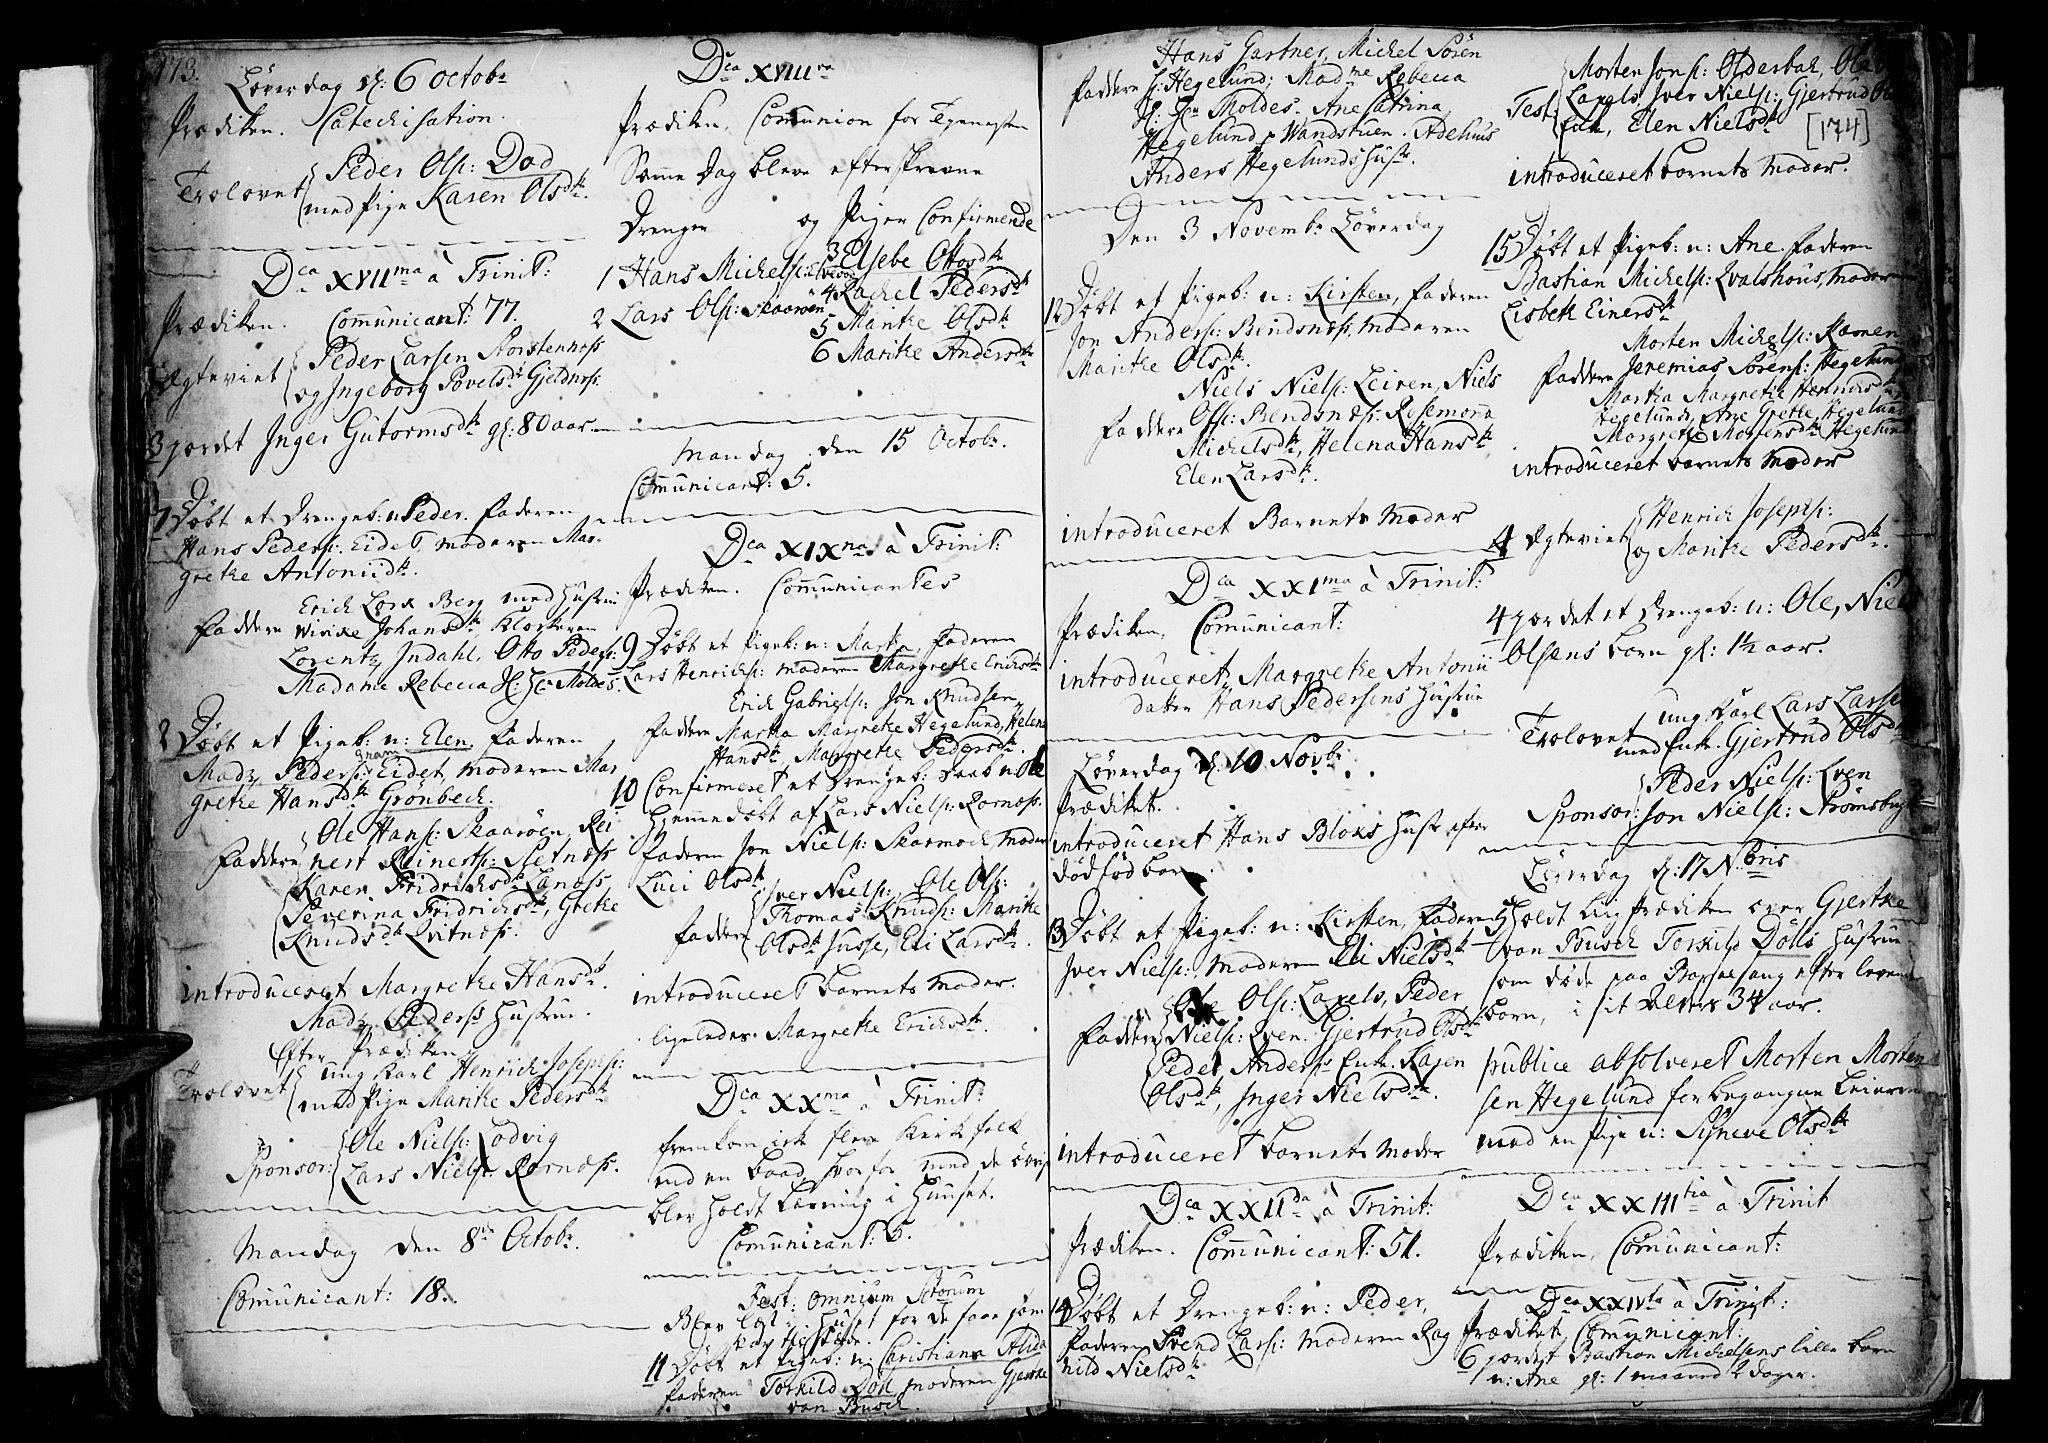 173.
Løverdag d: 6 octobr
Prædiken. Catechisation.
Trolovet Peder Ols: Dod
med Pige Karen Olsdtr.
Dca XVIIma à Trinit:
Prædiken. Comunicant: 77.
Ægteviet Peder Larsen Korstenness
og Ingeborg Povelsdtr Gieldness.
3 Jordet Inger Gutormsdtr gl: 80 aar.
7 Døbt et Drengeb: n Peder. Faderen
Hans Peders: Eidet, Moderen Mar-
grethe Antoniidtr.
Erich Lorx Berg med Hustrue
Faddere Wivike Johansdtr, Klockeren
Lorentz Indahl, Otto Peders:
Madame Rebecca Hr: Hr Moldes.
8 Døbt et Pigeb: n: Elen. Faderen
Madz Peders: Gram Eidet, Moderen Mar
grethe Hansdtr Grönbech.
Ole Hans: Skaaröen, Rei
Faddere nert Reinerts: Sletness
Karen Fridrichsdtr Laness
Severina Fridrichsdtr, Grethe
Knudsdtr Qvitness.
introduceret Margrethe Hansdtr.
Madz Peders: Hustrue.
Efter Prædiken
Trolovet ung Karl Henrich Joseps:
med Pige Marithe Pedersdtr
Sponsor: Ole Niels: Lodvig
Lars Niels: Rorness.
Mandag den 8de Octobr.
Comunicant: 18.
Dca XVIIIva
Prædiken, Comunion for Tienesten
Samme Dag bleve efterskrevne
Drenger og Piger Confirmerede
1 Hans Michels: 3 Elsebe Ottosdtr
2 Lars Ols: Skaaröen 4 Rachel Pedersdtr
5 Marithe Olsdtr
6 Marithe Andersdtr
Mandag den 15 Octobr.
Comunicant: 5.
Dca XIXna à Trinit:
Prædiken. Comunicantes
9 Døbt et Pigeb: n: Martha, Faderen
Lars Henrichs: Moderen Margrethe Erichsdtr
Erich Gabriels: Jon Knudsen,
Faddere Martha Margrethe Hegelund, Helena
Hansdtr, Margrethe Pedersdtr.
10 Confirmeret et Drengeb: Daab n Ole
Hiemmedøbt af Lars Niels: Rorness.
Faderen Jon Niels: Skarmoch, Moder
Luci Olsdtr
Iver Niels: Ole Ols:
Faddere Thomas Knuds: Marithe
Olsdtr Susse, Eli Larsdtr.
introduceret barnets Moder.
ligeledes Margrethe Erichsdtr.
Dca XXma à Trinit:
fremkom ick flere Kirkefolk
end en baad, hvorfor med de
blev holdt læsning i Huuset.
Comunicant: 6.
Fest: Omnium Sctorum
Blev læst i Huset for de faae som
kom
11 Døbt et Pigeb: n: Christiana Alida
Faderen Torkild Döll, Moderen Giertke
van Busch.
Hans Gartner, Michel Sören
Faddere s: Hegelund, Madme Rebecca
Hr: Hr Moldes. Ane Catrina
Hegelund Wandstuen. Adelhus
Anders Hegelunds Hustr.
Den 3 Novembr Løverdag
12 Døbt et Pigeb: n: Kirsten, Faderen
Jon Anders: Bendsness, Moderen
Marithe Olsdtr.
Niels Niels: Leiren, Niels
Faddere Ols: Bendsness: Rosemora
Michelsdtr, Helena Hansdtr
Elen Larsdtr.
introduceret Barnets Moder
Dca XXIma à Trinit:
Prædiken, Comunicant:
introduceret Margrethe Antonii
datter Hans Pedersens Hustrue
Løverdag d: 10 Novbr:
Prædiket.
introduceret Hans Bloks Hustr efter
dødfød barn.
13 Døbt et Pigeb: n: Kirsten, Faderen
Iver Niels:, Moderen Eli Nielsdtr
Ole Ols: Laxels, Peder
Faddere Niels: Even. Giertrud Olsdtr
Peder Anders: Enke. Karen
Olsdtr, Inger Nielsdtr.
introduceret barnets Moder
Dca XXIIda à Trinit:
Prædiken. Comunicant: 51.
14 Døbt et Drengeb: n: Peder,
Faderen Svend Lars: Moderen Rag
nild Nielsdtr.
Morten Jons: Olderbak, Ole
Test: Laxels, Iver Niels:, Giertrud Ols
Enk, Elen Nielsdtr
[174]
introduceret barnets Moder.
15 Døbt et Pigeb: n: Ane. Faderen
Bastian Michels: Qvalshous, Moderen
Lisbeth Einersdtr
Morten Michels: Ravnen
Faddere Jeremias Sörens: Hegelund
Martha Margrethe Henrichsdtr
Hegelund, Ane Grethe Hegelund
Margrethe Mortensdtr Hegelund
introduceret barnets Moder
4 Ægteviet Henrich Joseps:
og Marithe Pedersdtr.
4 Jordet et Drengeb: n: Ole, Niels
Olsens barn gl: 1½ aar.
Trolovet ung Karl Lars Larsen
med Enke. Giertrud Olsdtr
Peder Niels: Even
Sponsor: Jon Niels: Strömsbugt
Løverdag d: 17 Nbris
5 Holdt Liigprædiken over Giertke
van Busch Torkild Dölls Hustrue
som døde paa Barselseng efter levende
barn, i sit Alders 34 aar.
publice absolveret Morten Morten
sen Hegelund for begangne Leiermaal
med en Pige n: Syneve Olsdtr
Dca XXIIItia à Trinit
Prædiken, Comunicant:
Dca XXIVta à Trinit:
Prædiket, Comunicant:
6 Jordet Bastian Michelsens lille barn
n: Ane gl: 1 maaned 2 dager.